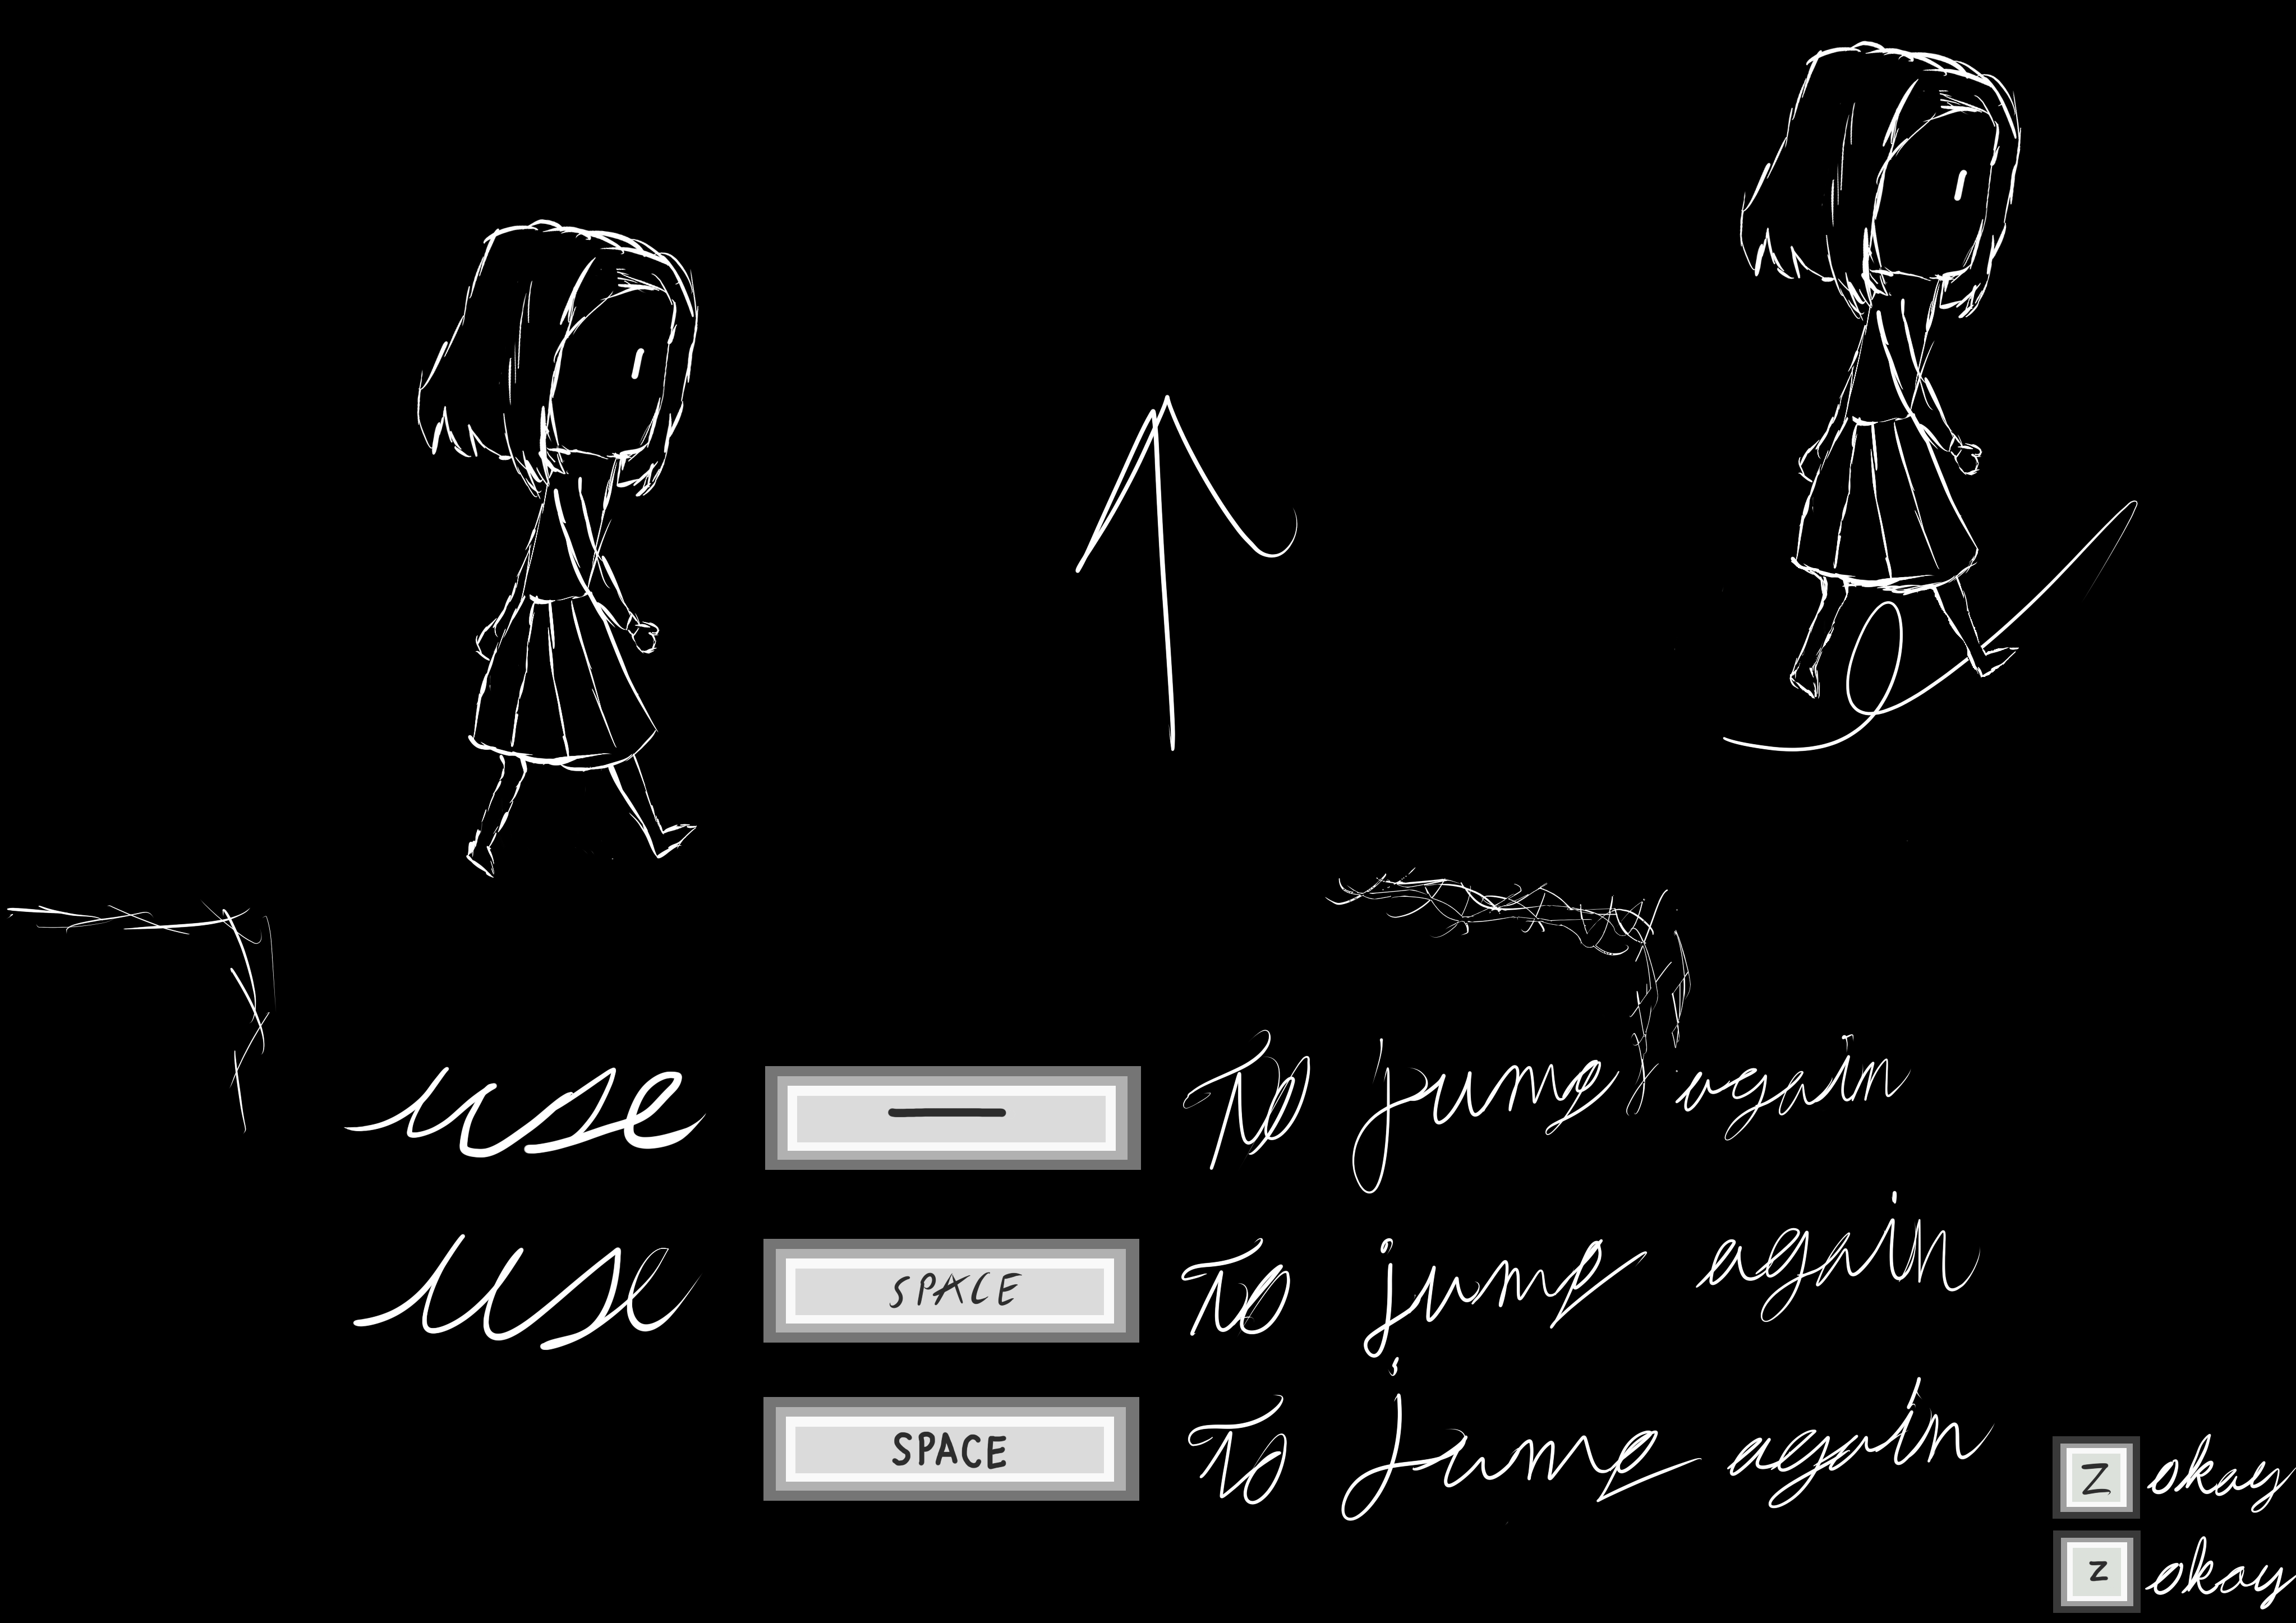 use — To jump again
use SPACE To jump again
use SPACE To jump again
Z okay
z okay